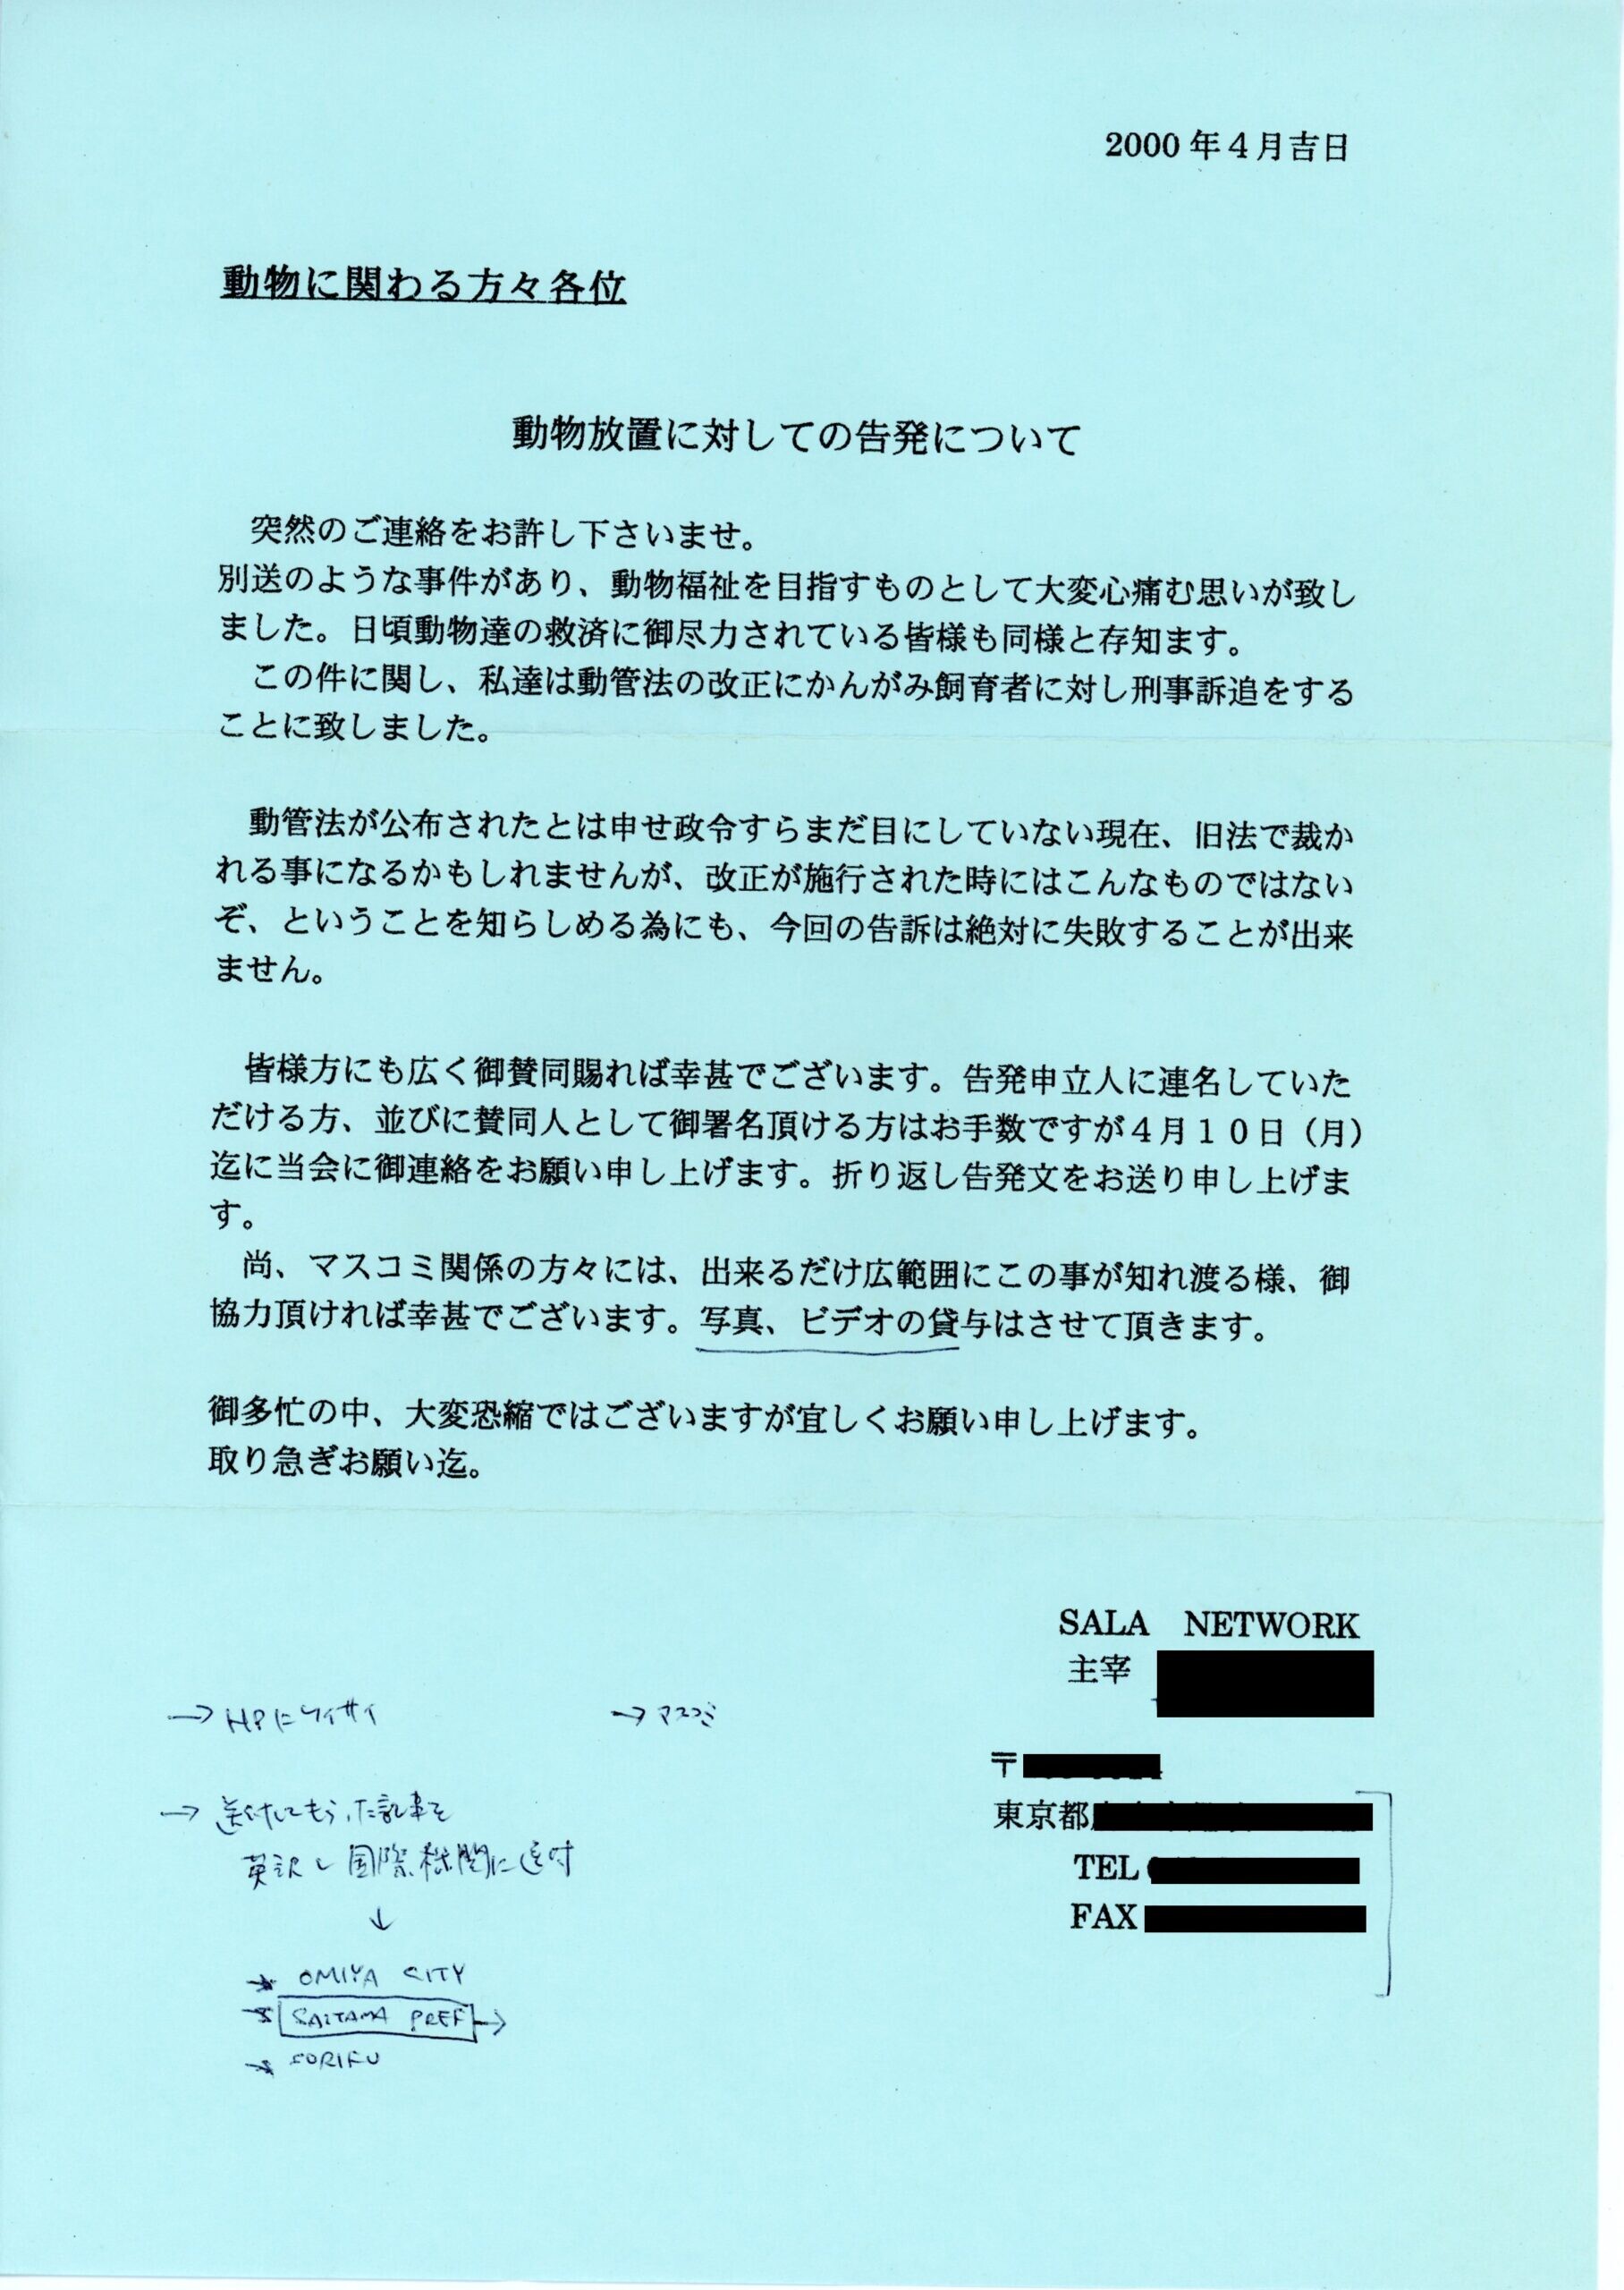 2000年4月吉日
動物に関わる方々各位
動物放置に対しての告発について
突然のご連絡をお許し下さいませ。
別送のような事件があり、動物福祉を目指すものとして大変心痛む思いが致し
ました。日頃動物達の救済に御尽力されている皆様も同様と存知ます。
この件に関し、私達は動管法の改正にかんがみ飼育者に対し刑事訴追をする
ことに致しました。
動管法が公布されたとは申せ政令すらまだ目にしていない現在、旧法で裁か
れる事になるかもしれませんが、改正が施行された時にはこんなものではない
ぞ、ということを知らしめる為にも、今回の告訴は絶対に失敗することが出来
ません。
皆様方にも広く御賛同賜れば幸甚でございます。告発申立人に連名していた
だける方、並びに賛同人として御署名頂ける方はお手数ですが4月10日（月）
迄に当会に御連絡をお願い申し上げます。折り返し告発文をお送り申し上げま
す。
尚、マスコミ関係の方々には、出来るだけ広範囲にこの事が知れ渡る様、御
協力頂ければ幸甚でございます。写真、ビデオの貸与はさせて頂きます。
御多忙の中、大変恐縮ではございますが宜しくお願い申し上げます。
取り急ぎお願い迄。
SALA NETWORK
主宰
〒
東京都
TEL
FAX
→ HPにケイサイ
→ マスコミ
→ 送付してもらった記事を
英訳し国際機関に送付
↓
→ OMIYA CITY
→ SAITAMA PREF →
→ SORIFU